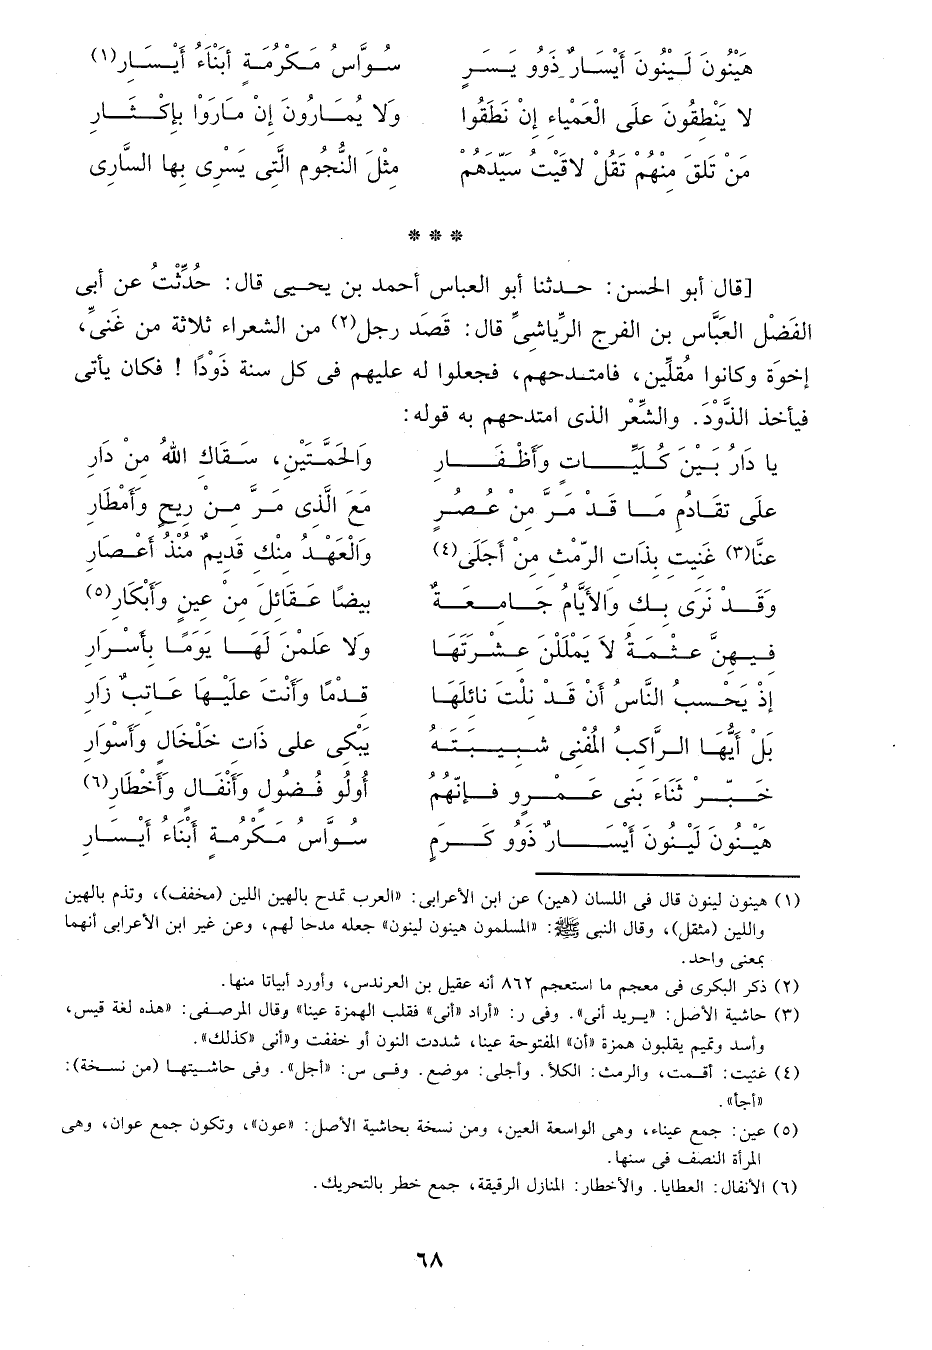 هَيْنُونَ لَيْنُونَ أَيْسَارٌ ذَوُو يَسَرٍ سُوَّاسُ مَكْرُمَةٍ أَبْنَاءُ أَيْسَارِ(١)
لا يَنْطِقُونَ عَلَى الْعَمْيَاءِ إِنْ نَطَقُوا وَلَا يُمَارُونَ إِنْ مَارَوْا بِإِكْثَارِ
مَنْ تَلْقَ مِنْهُمْ تَقُلْ لاَقَيْتُ سَيِّدَهُمْ مِثْلَ النُّجُومِ الَّتِى يَسْرِى بِهَا السَّارِى
* * *
[قال أبو الحسن: حدثنا أبو العباس أحمد بن يحيى قال: حُدِّثْتُ عن أبى
الفَضْل العَبَّاس بن الفرج الرِّيَاشىِّ قال: قَصَد رجل(٢) من الشعراء ثلاثة من غَنىٍّ،
إخوَة وكانوا مُقلِّين، فامتدحهم، فجعلوا له عليهم فى كل سنة ذَوْدًا ! فكان يأتى
فيأخذ الذَّوْدَ. والشِّعْر الذى امتدحهم به قوله:
يا دَارُ بَيْنَ كُلَيَّاتٍ وأَظْفَارِ وَالحَمَّتَيْنِ، سَقَاكِ اللهُ مِنْ دَارِ
عَلَى تَقَادُمِ مَا قَدْ مَرَّ مِنْ عُصُرٍ مَعَ الَّذِى مَرَّ مِنْ رِيحٍ وَأَمْطَارِ
عَنَّا(٣) غَنِيتِ بِذَاتِ الرِّمْثِ مِنْ أَجَلَى(٤) وَالْعَهْدُ مِنْكِ قَدِيمٌ مُنْذُ أَعْصَارِ
وَقَدْ نَرَى بِكِ وَالأَيَّامُ جَامِعَةٌ بِيضًا عَقَائِلَ مِنْ عِينٍ وَأَبْكَارِ(٥)
فِيهِنَّ عَثْمَةُ لاَ يَمْلَلْنَ عِشْرَتَهَا وَلا عَلِمْنَ لَهَا يَوْمًا بِأَسْرَارِ
إِذْ يَحْسِبُ النَّاسُ أَنْ قَدْ نِلْتَ نَائِلَهَا قِدْمًا وَأَنْتَ عَلَيْهَا عَاتِبٌ زَارِ
بَلْ أَيُّهَا الرَّاكِبُ المُفْنِى شَبِيبَتَهُ يَبْكِى عَلَى ذَاتِ خَلْخَالٍ وَأَسْوَارِ
خَبِّرْ ثَنَاءَ بَنِى عَمْرٍو فَإِنَّهُمُ أُولُو فُضُولٍ وَأَنْفَالٍ وَأَخْطَارِ(٦)
هَيْنُونَ لَيْنُونَ أَيْسَارٌ ذَوُو كَرَمٍ سُوَّاسُ مَكْرُمَةٍ أَبْنَاءُ أَيْسَارِ
(١) هينون لينون قال فى اللسان (هين) عن ابن الأعرابى: «العرب تمدح بالهين اللين (مخفف)، وتذم بالهين
واللين (مثقل)، وقال النبى ﷺ: «المسلمون هينون لينون» جعله مدحا لهم، وعن غير ابن الأعرابى أنهما
بمعنى واحد.
(٢) ذكر البكرى فى معجم ما استعجم ٨٦٢ أنه عقيل بن العرندس، وأورد أبياتا منها.
(٣) حاشية الأصل: «يريد أنى». وفى ر: «أراد «أنى» فقلب الهمزة عينا» وقال المرصفى: «هذه لغة قيس،
وأسد وتميم يقلبون همزة «أن» المفتوحة عينا، شددت النون أو خففت و«أنى «كذلك».
(٤) غنيت: أقمت، والرمث: الكلأ. وأجلى: موضع. وفى س: «أجل». وفى حاشيتها (من نسخة):
«أجأ».
(٥) عين: جمع عيناء، وهى الواسعة العين، ومن نسخة بحاشية الأصل: «عون»، وتكون جمع عوان، وهى
المرأة النصف فى سنها.
(٦) الأنفال: العطايا. والأخطار: المنازل الرقيقة، جمع خطر بالتحريك.
٦٨